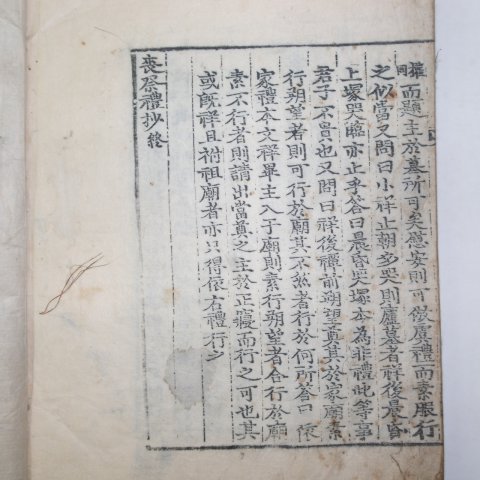 而題主於墓所可矣慰安則可倣虞禮而素服行
之似當又問曰小祥止朝夕哭則廬墓者祥後晨昏
上塚哭臨亦止乎答曰晨昏哭塚本為非禮此等事
君子不曾也又問曰祥後禫前朔望奠其於家廟素
行朔望者則可行於廟其不然者行於何所答曰依
家禮本文祥畢主入于廟則素行朔望者合行於廟
素不行者則請出當奠之主於正寢而行之可也其
或旣祥且祔祖廟者亦只得依右禮行之
喪祭禮抄終